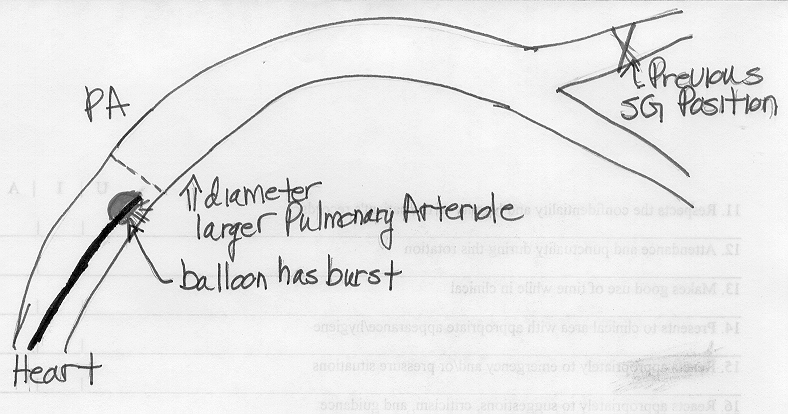 PA
↑ Previous
SG Position
⇑ diameter
larger Pulmonary Arteriole
balloon has burst
Heart
11. Respects the confidentiality and
12. Attendance and punctuality during this rotation
13. Makes good use of time while in clinical
14. Presents to clinical area with appropriate appearance/hygiene
15. Reacts appropriately to emergency and/or pressure situations
16. Reacts appropriately to suggestions, criticism, and guidance